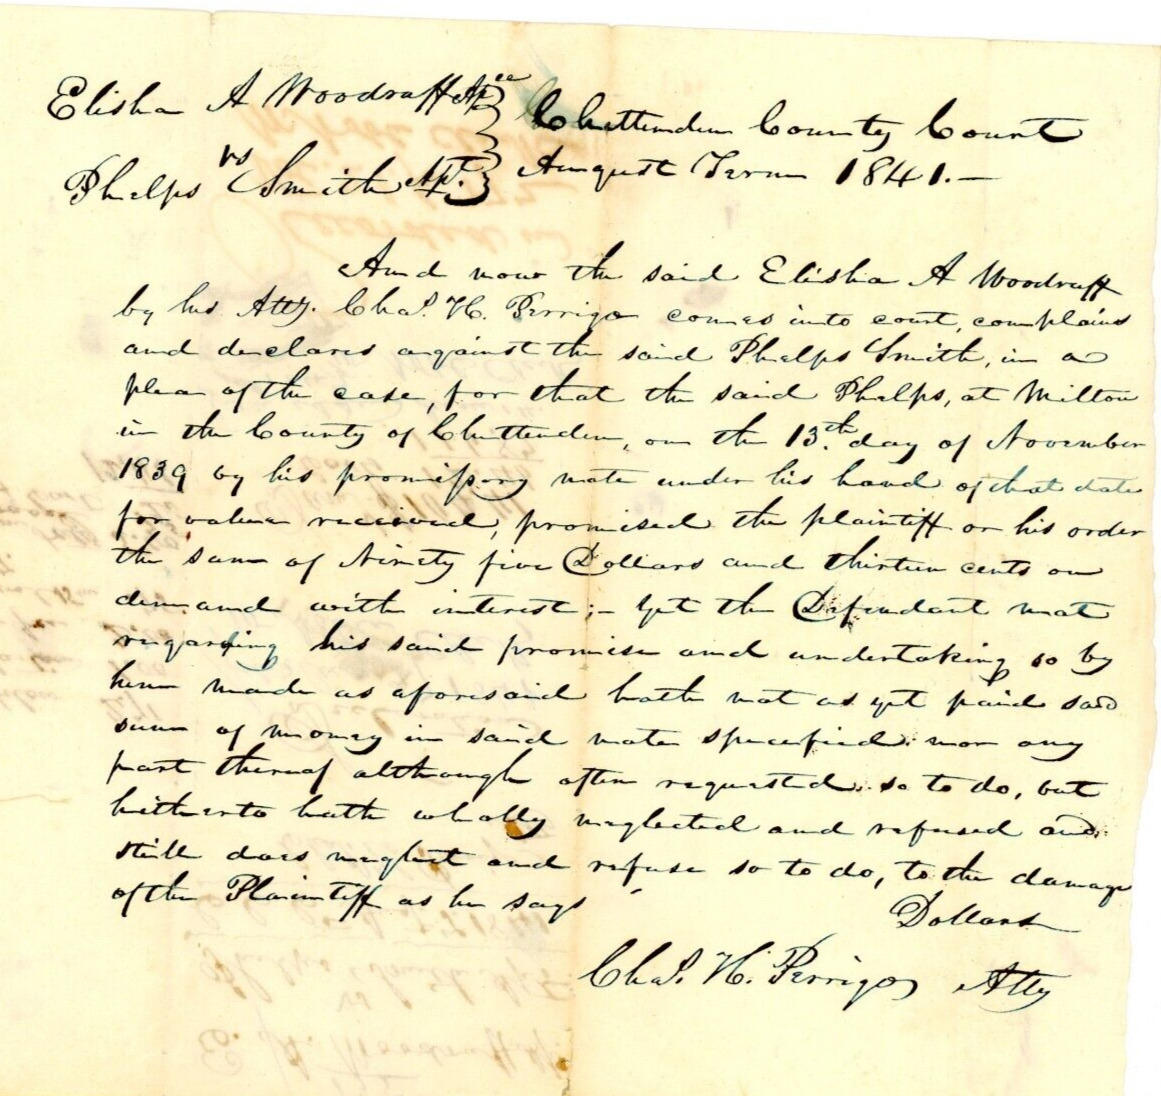 Elisha A Woodruff Apee } Chittenden County Court
vs
Phelps Smith Apt. } August Term 1841.—
And now the said Elisha A Woodruff
by his Atty. Chas. H. Perrigo comes into court, complains
and declares against the said Phelps Smith, in a
plea of the case, for that the said Phelps, at Milton
in the County of Chittenden, on the 13th. day of November
1839 by his promissory note under his hand of that date
for value received, promised the plaintiff or his order
the sum of Ninety five Dollars and thirteen cents on
demand with interest;— Yet the Defendant not
regarding his said promise and undertaking so by
him made as aforesaid hath not as yet paid said
sum of money in said note specified nor any
part thereof although often requested so to do, but
hitherto hath wholly neglected and refused and
still does neglect and refuse so to do, to the damage
of the Plaintiff as he says Dollars
Chas. H. Perrigo Atty